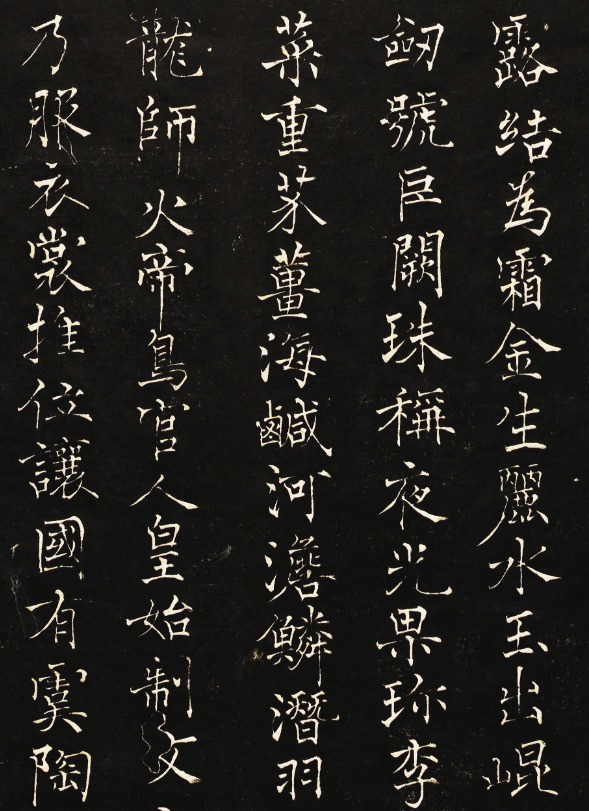 露結為霜金生麗水玉出崐
劒號巨闕珠稱夜光果珎李
菜重芥薑海鹹河澹鱗潛羽
龍師火帝鳥官人皇始制文
乃服衣裳推位讓國有虞陶